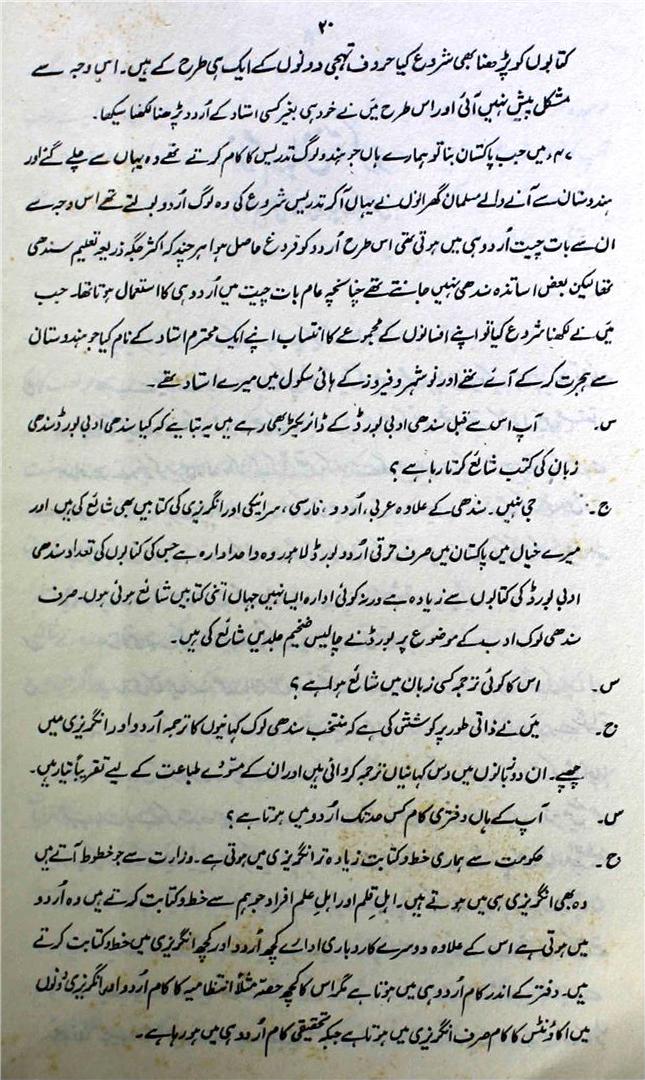 ۲۰
کتابوں کو پڑھنا بھی شروع کیا حروف تہجی دونوں کے ایک ہی طرح کے ہیں۔ اس وجہ سے
مشکل پیش نہیں آئی اور اس طرح میں نے خود ہی بغیر کسی استاد کے اُردو پڑھنا لکھنا سیکھا۔
۴۷ء میں جب پاکستان بنا تو ہمارے ہاں جو ہندو لوگ تدریس کا کام کرتے تھے وہ یہاں سے چلے گئے اور
ہندوستان سے آنے والے مسلمان گھرانوں نے یہاں آکر تدریس شروع کی وہ لوگ اُردو بولتے تھے اس وجہ سے
ان سے بات چیت اُردو ہی میں ہوتی تھی اس طرح اُردو کو فروغ حاصل ہوا ہر چند کہ اکثر جگہ ذریعہ تعلیم سندھی
تھا لیکن بعض اساتذہ سندھی نہیں جانتے تھے چنانچہ عام بات چیت میں اُردو ہی کا استعمال ہوتا تھا۔ جب
میں نے لکھنا شروع کیا تو اپنے افسانوں کے مجموعے کا انتساب اپنے ایک محترم استاد کے نام کیا جو ہندوستان
سے ہجرت کر کے آئے تھے اور نوشہرو فیروز کے ہائی سکول میں میرے استاد تھے۔
س۔ آپ اس سے قبل سندھی ادبی بورڈ کے ڈائریکٹر بھی رہے ہیں یہ بتایے کہ کیا سندھی ادبی بورڈ سندھی
زبان کی کتب شائع کرتا رہا ہے؟
ج۔ جی نہیں۔ سندھی کے علاوہ عربی، اُردو، فارسی، سرائیکی اور انگریزی کی کتابیں بھی شائع کی ہیں اور
میرے خیال میں پاکستان میں صرف ترقی اُردو بورڈ لاہور وہ واحد ادارہ ہے جس کی کتابوں کی تعداد سندھی
ادبی بورڈ کی کتابوں سے زیادہ ہے ورنہ کوئی ادارہ ایسا نہیں جہاں اتنی کتابیں شائع ہوئی ہوں۔ صرف
سندھی لوک ادب کے موضوع پر بورڈ نے چالیس ضخیم جلدیں شائع کی ہیں۔
س۔ اس کا کوئی ترجمہ کسی زبان میں شائع ہوا ہے؟
ج۔ میں نے ذاتی طور پر کوشش کی ہے کہ منتخب سندھی لوک کہانیوں کا ترجمہ اُردو اور انگریزی میں
چھپے۔ ان دو زبانوں میں دس کہانیاں ترجمہ کروائی ہیں اور ان کے مسوّدے طباعت کے لیے تقریباً تیار ہیں۔
س۔ آپ کے ہاں دفتری کام کس حد تک اُردو میں ہوتا ہے؟
ج۔ حکومت سے ہماری خط و کتابت زیادہ تر انگریزی میں ہوتی ہے۔ وزارت سے جو خطوط آتے ہیں
وہ بھی انگریزی ہی میں ہوتے ہیں۔ اہلِ قلم اور اہلِ علم افراد جو ہم سے خط و کتابت کرتے ہیں وہ اُردو
میں ہوتی ہے اس کے علاوہ دوسرے کاروباری ادارے کچھ اُردو اور کچھ انگریزی میں خط و کتابت کرتے
ہیں۔ دفتر کے اندر کام اُردو ہی میں ہوتا ہے مگر اس کا کچھ حصّہ مثلاً انتظامیہ کا کام اُردو اور انگریزی دونوں
میں اکاؤنٹس کا کام صرف انگریزی میں ہوتا ہے جبکہ تحقیقی کام اُردو ہی میں ہو رہا ہے۔